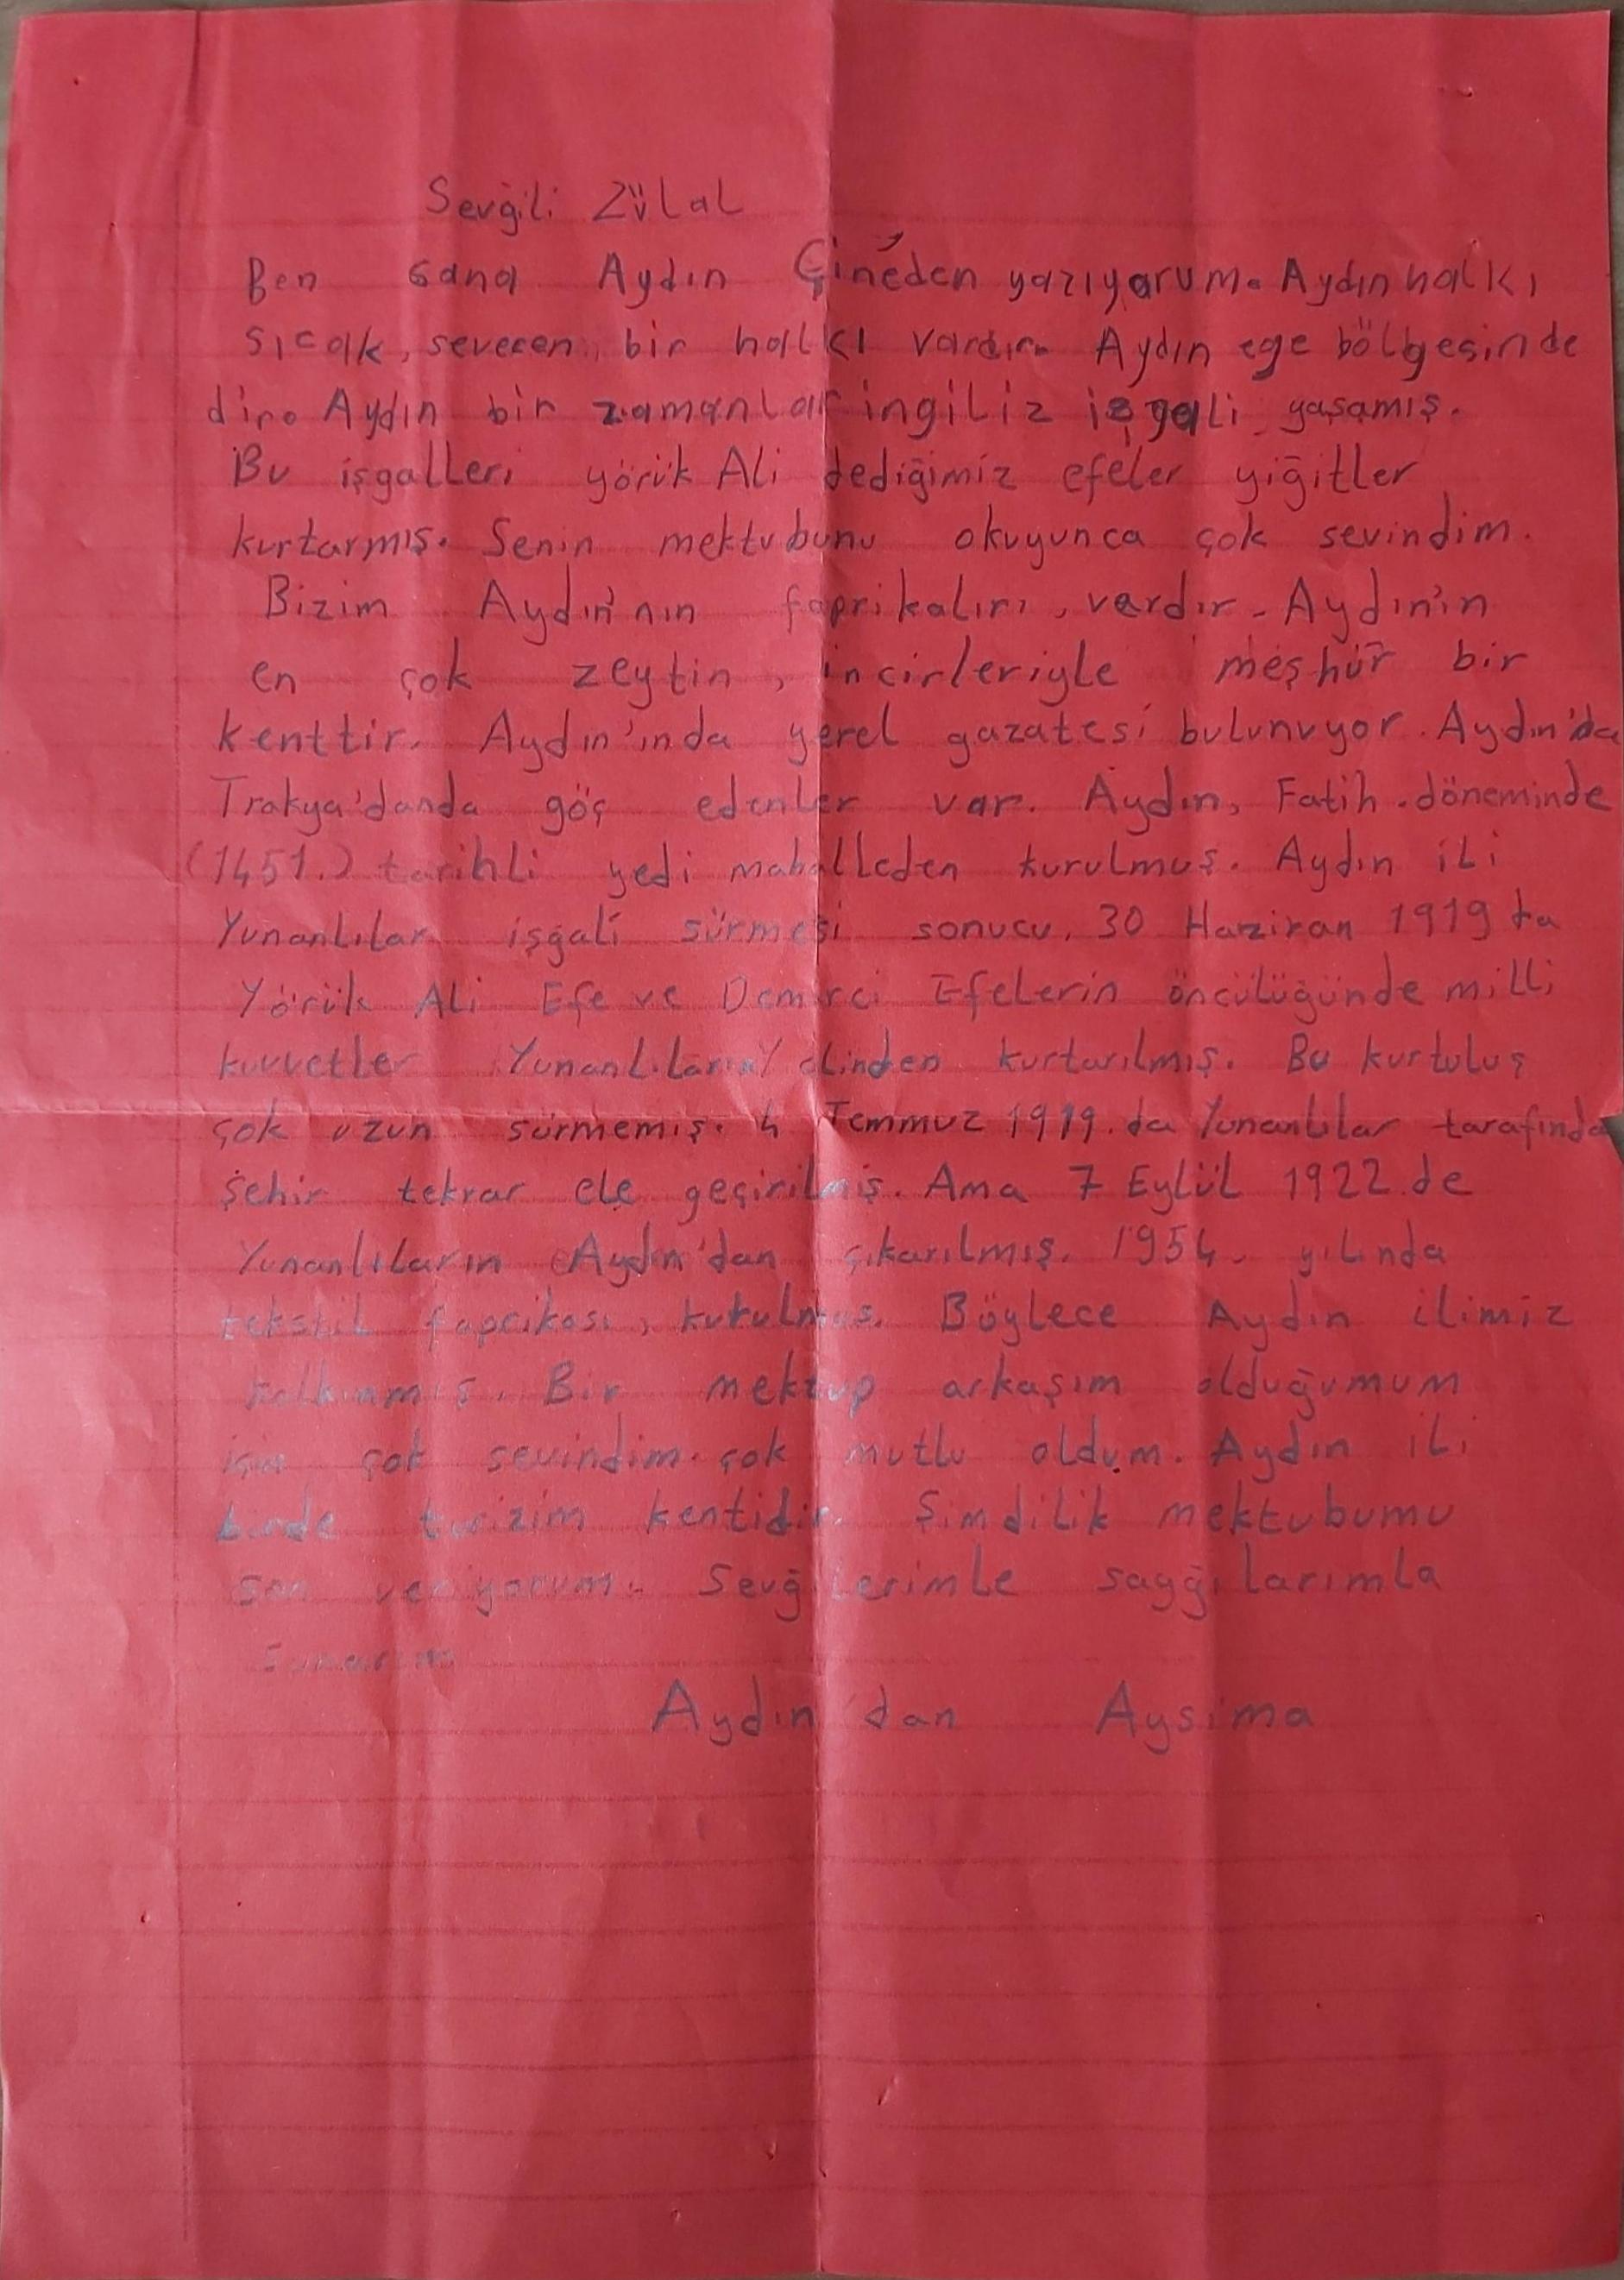 Sevğili Zülal
Ben sana Aydın Çine'den yazıyorum. Aydın halkı
sıcak, sevecen, bir halkı vardır. Aydın ege bölgesinde
dir. Aydın bir zamanlar ingiliz işgali yaşamış.
Bu işgalleri yörük Ali dediğimiz efeler yiğitler
kurtarmış. Senin mektubunu okuyunca çok sevindim.
Bizim Aydın'nın faprikalırı, vardır. Aydın'ın
en çok zeytin, incirleriyle meşhur bir
kenttir. Aydın'ında yerel gazatesi bulunuyor. Aydın'da
Trakya'danda göç edenler var. Aydın, Fatih döneminde
(1451.) tarihli yedi mahalleden kurulmuş. Aydın ili
Yunanlılar işgali sürmesi sonucu, 30 Haziran 1919 ta
Yörük Ali Efe ve Demirci Efelerin öncülüğünde milli
kuvvetler Yunanlıların elinden kurtarılmış. Bu kurtuluş
çok uzun sürmemiş. 4 Temmuz 1919.da Yunanlılar tarafında
şehir tekrar ele geçirilmiş. Ama 7 Eylül 1922.de
Yunanlıların Aydın'dan çıkarılmış. 1954. yılında
tekstil faprikası, kurulmuş. Böylece Aydın ilimiz
kalkınmış. Bir mektup arkaşım olduğumum
için çok sevindim. çok mutlu oldum. Aydın ili
birde turizim kentidir. Şimdilik mektubumu
son veriyorum. Sevğilerimle sayğılarımla
sunarım
Aydın'dan Aysima